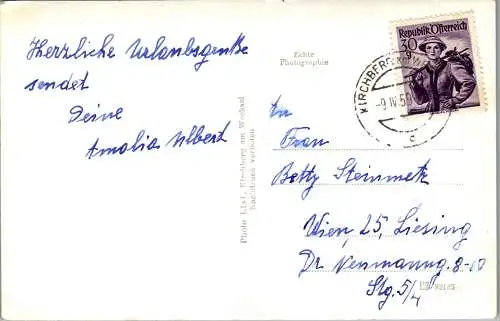 Herzliche Urlaubsgrüße
sendet
Deine
Amalia Albert
Echte
Photographie
Photo List, Kirchberg am Wechsel
Nachdruck verboten
Republik Österreich
30
g
KIRCHBERG
-9.IV.59
c
An
Frau
Betty Steinmetz
Wien, 25, Liesing
Dr Neumanng. 8-10
Stg. 5/4